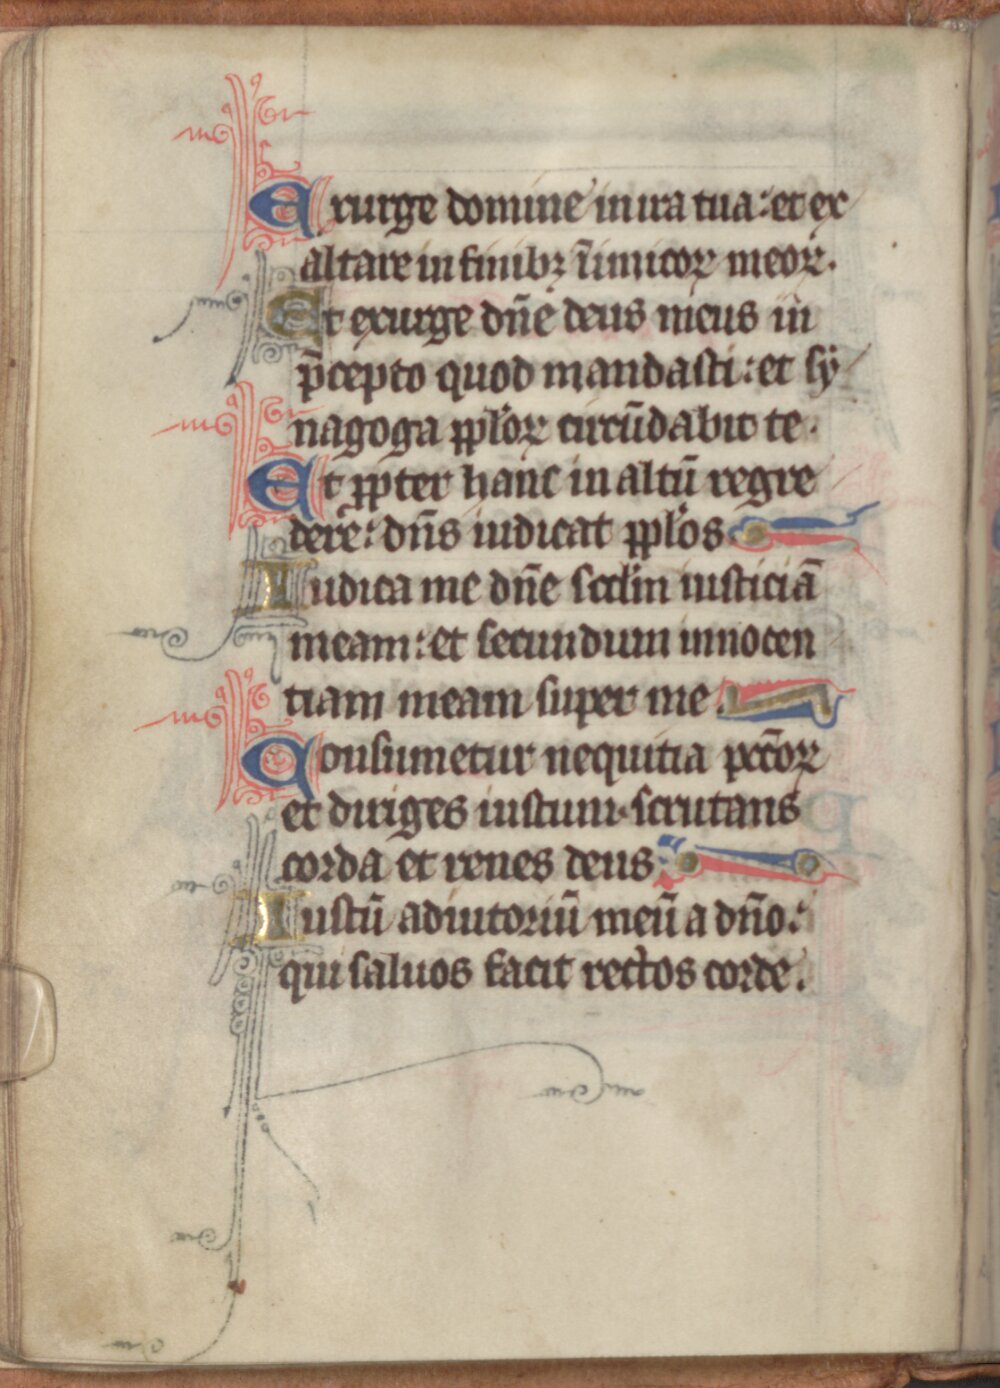 Exurge domine in ira tua: et ex
altare in finibꝫ īimicoꝝ meoꝝ.
Et exurge dn̄e deus meus in
p̄cepto quod mandasti: et sy
nagoga ppl̓oꝝ circūdabit te.
Et ꝓpter hanc in altū regre
dere: dn̄s iudicat ppl̓os
Iudica me dn̄e scd̓m iusticiā
meam: et secundum innocen
tiam meam super me.
Consumetur nequitia pcc̄oꝝ
et diriges iustum. scrutans
corda et renes deus.
Iustū adiutoriū meū a dn̄o:
qui saluos facit rectos corde.